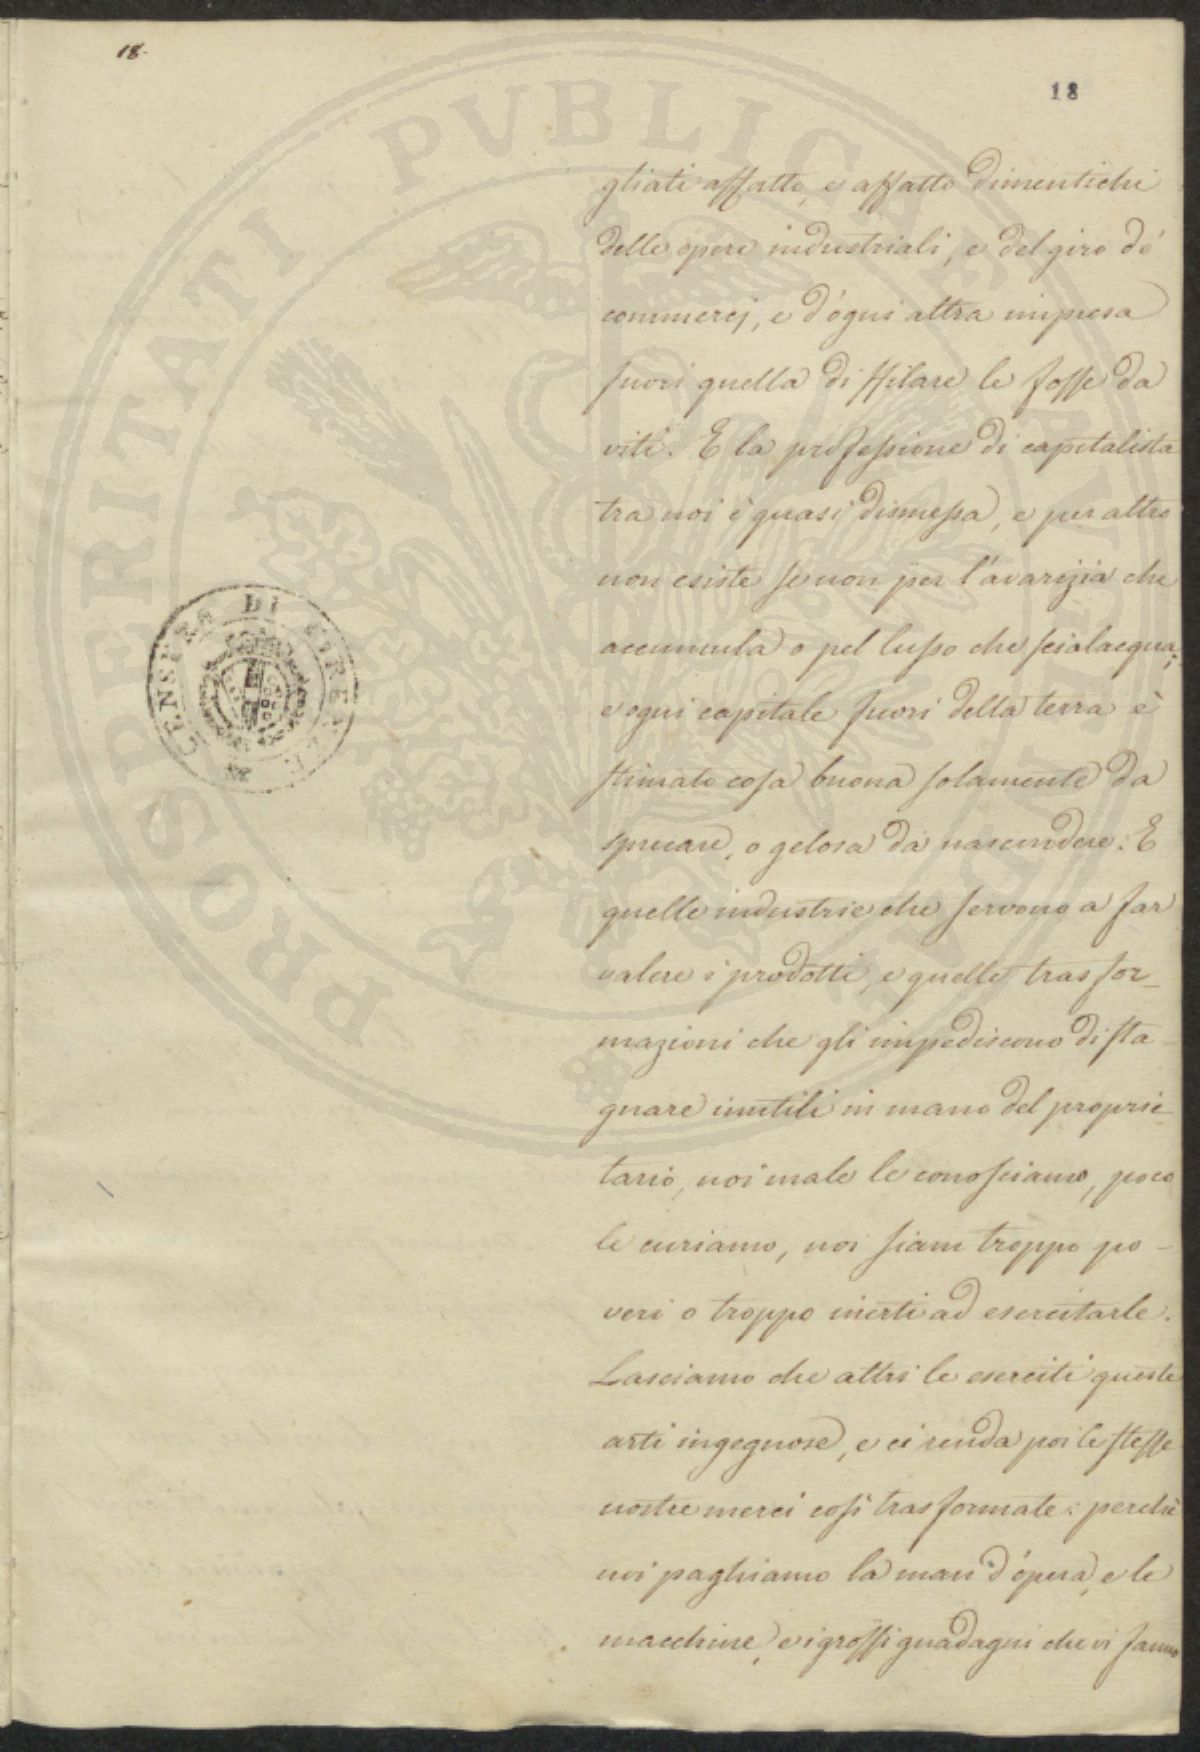 18.
18
gliati affatto, e affatto dimentichi
delle opere industriali, e del giro de'
commercj, e d'ogni altra impresa
fuori quella di affilare le fosse da
viti. E la professione di capitalista
tra noi è quasi dismessa, e per altro
non esiste se non per l'avarizia che
accumula o pel lusso che scialacqua;
e ogni capitale fuori della terra è
stimato cosa buona solamente da
sprecare, o gelosa da nascondere. E
quelle industrie che servono a far
valere i prodotti, e quelle trasfor-
mazioni che gli impediscono di sta-
gnare inutili in mano del proprie-
tario, noi male le conosciamo, poco
le curiamo, noi siam troppo po-
veri o troppo inerti ad esercitarle.
Lasciamo che altri le eserciti queste
arti ingegnose, e ci renda poi le stesse
nostre merci così trasformate: perchè
noi paghiamo la man d'opera, e le
macchine, e i grossi guadagni che vi fanno
CENSURA DI FIRENZE
PROSPERITATI PUBLICAE